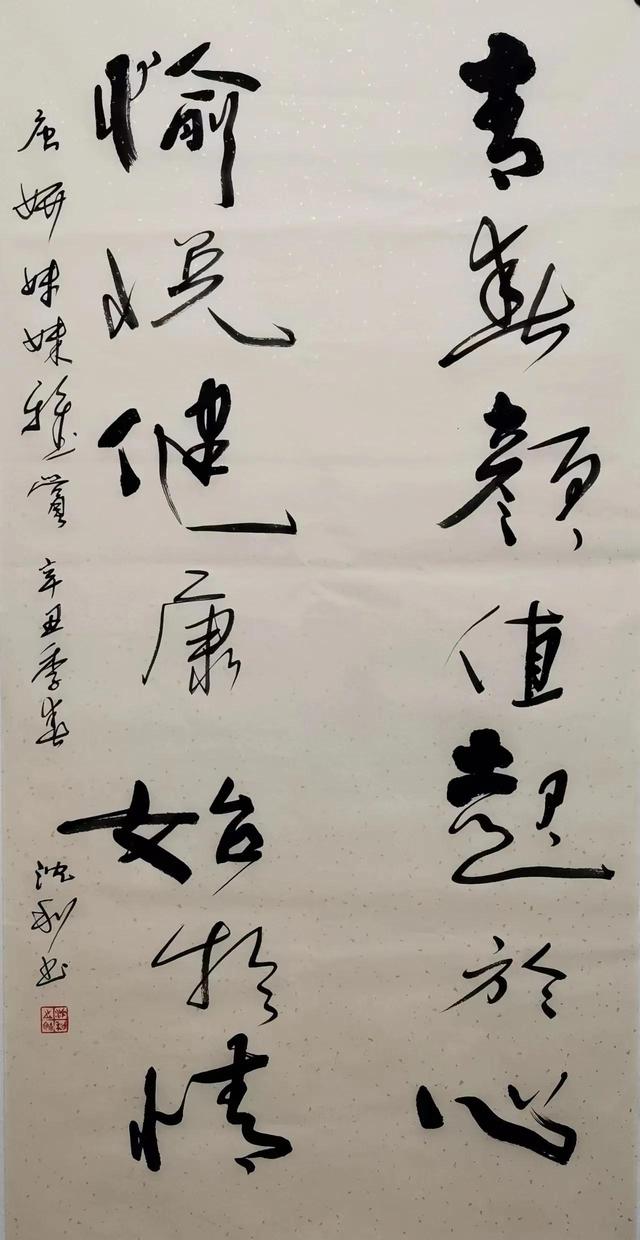 青春颜值起於心
愉悦健康始於情
唐妍妹妹雅赏 辛丑季春
沈利书